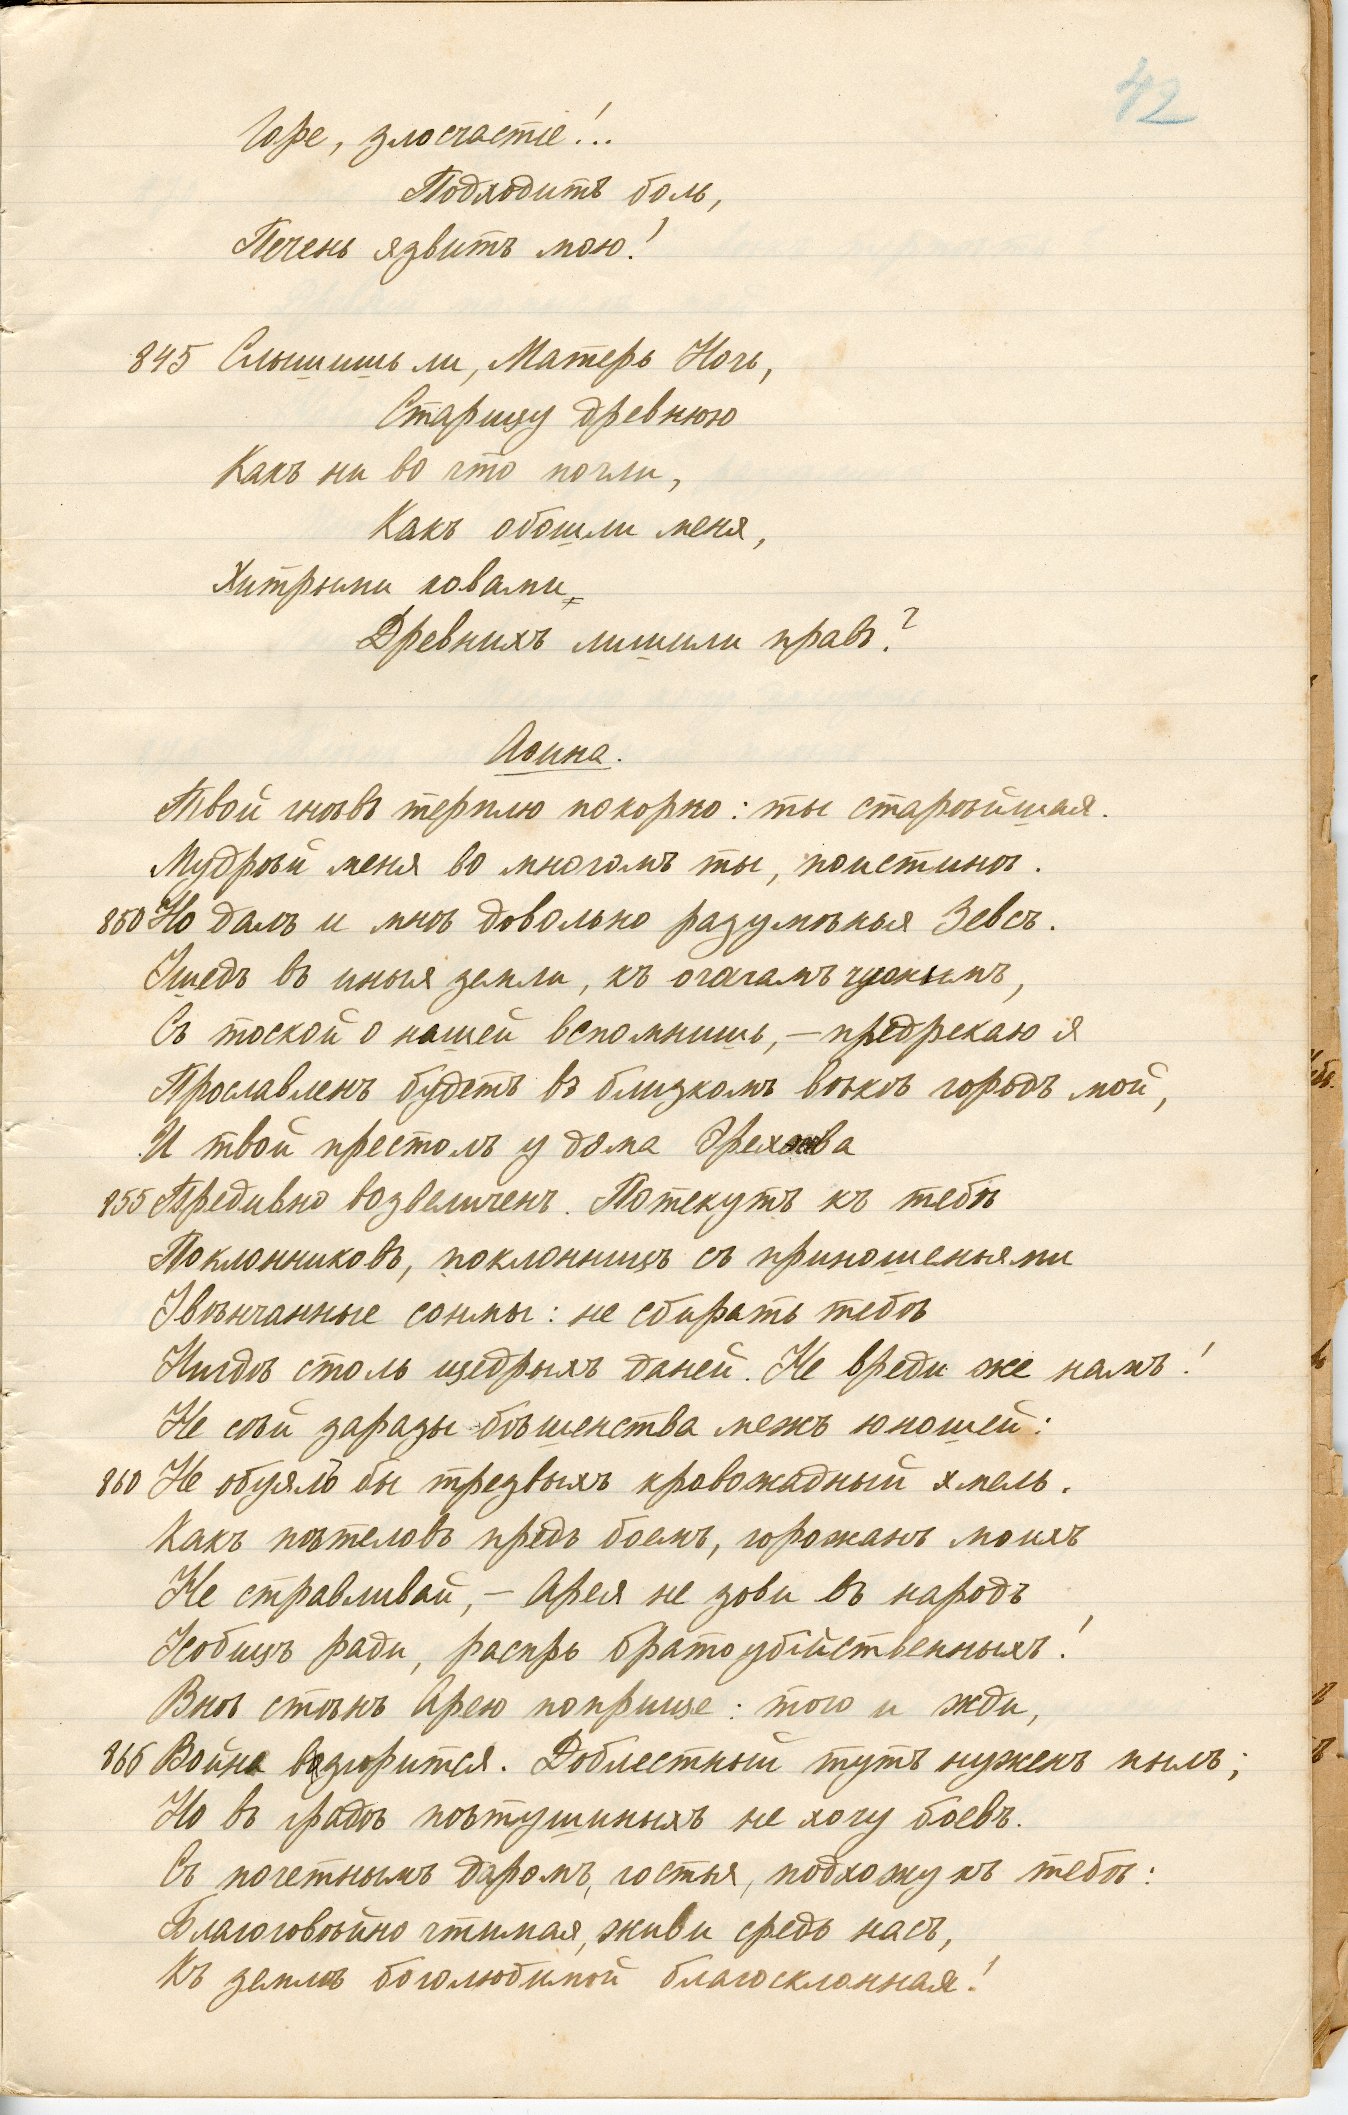 42
Горе, злосчастіе!..
Подходитъ боль,
Печень язвитъ мою!
845 Слышишь ли, Матерь Ночь,
Старицу древнюю
Какъ ни во что почли,
Какъ обошли меня,
Хитрыми ковами
Древнихъ лишили правъ?
Аѳина.
Твой гнѣвъ терплю покорно: ты старѣйшая.
Мудрѣй меня во многомъ ты, поистинѣ.
850 Но далъ и мнѣ довольно разумѣнья Зевсъ.
Ушедъ въ иныя земли, къ очагамъ чужимъ,
Съ тоской о нашей вспомнишь, — предрекаю я
Прославленъ будетъ въ близкомъ вѣкѣ городъ мой,
И твой престолъ у дома Эрехѳева
855 Предивно возвеличенъ. Потекутъ къ тебѣ
Поклонниковъ, поклонницъ съ приношеньями
Увѣнчанные сонмы: не сбирать тебѣ
Нигдѣ столь щедрыхъ даней. Не вреди же намъ!
Не сѣй заразы бѣшенства межъ юношей:
860 Не обуялъ бы трезвыхъ кровожадный хмель.
Какъ пѣтеловъ предъ боемъ, горожанъ моихъ
Не стравливай, — Арея не зови въ народъ
Усобицъ ради, распрь братоубійственныхъ!
Внѣ стѣнъ Арею поприще: того и жди,
865 Война возгорится. Доблестный тутъ нуженъ пылъ;
Но въ градѣ пѣтушиныхъ не хочу боевъ.
Съ почетнымъ даромъ, гостья, подхожу къ тебѣ:
Благоговѣйно чтимая, живи средь насъ,
Къ землѣ боголюбимой благосклонная!